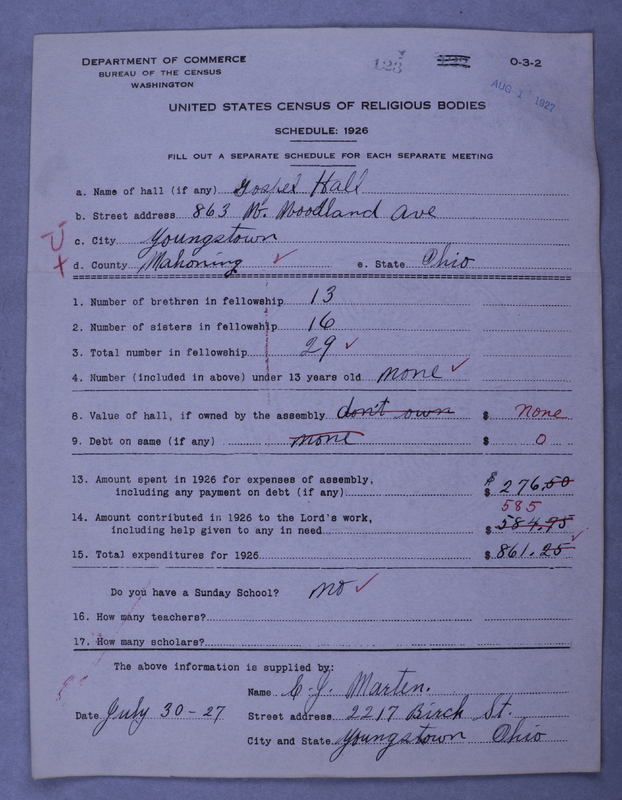 DEPARTMENT OF COMMERCE
BUREAU OF THE CENSUS
WASHINGTON
123
O-3-2
AUG 1 1927
UNITED STATES CENSUS OF RELIGIOUS BODIES
SCHEDULE: 1926
FILL OUT A SEPARATE SCHEDULE FOR EACH SEPARATE MEETING
a. Name of hall (if any) Gospel Hall
b. Street address 863 W. Woodland Ave
U c. City Youngstown
x d. County Mahoning ✓ e. State Ohio
1. Number of brethren in fellowship 13
2. Number of sisters in fellowship 16
3. Total number in fellowship 29 ✓
4. Number (included in above) under 13 years old none ✓
8. Value of hall, if owned by the assembly don't own $ none
9. Debt on same (if any) none $ 0
13. Amount spent in 1926 for expenses of assembly,
including any payment on debt (if any) $ $ 276.50
585
14. Amount contributed in 1926 to the Lord's work,
including help given to any in need $ 584.95
15. Total expenditures for 1926 $ 861.25 ✓
Do you have a Sunday School? no ✓
16. How many teachers?
17. How many scholars?
The above information is supplied by:
Name E. J. Marten.
Date July 30-27 Street address 2217 Birch St.
City and State Youngstown Ohio